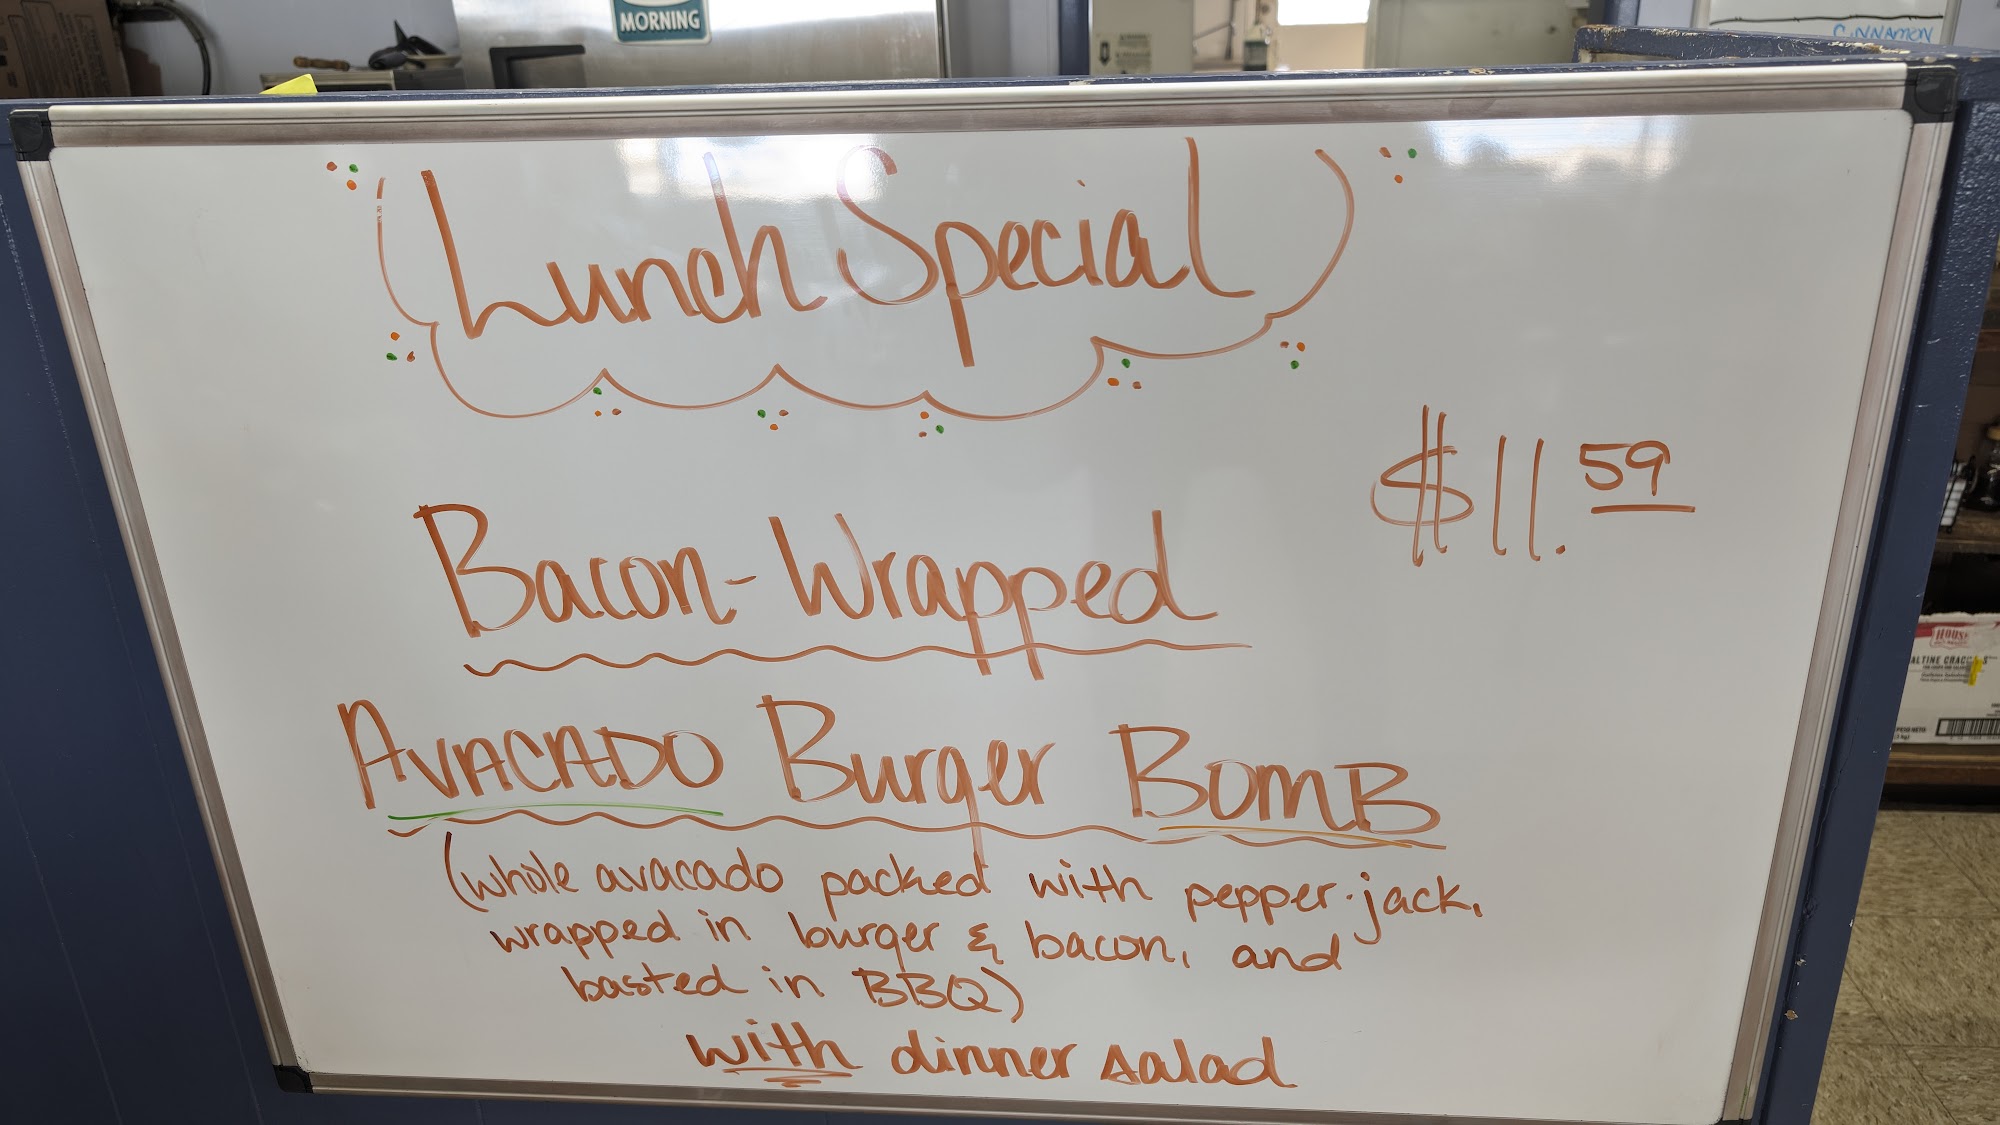 MORNING
CINNAMON
Lunch Special
$11.59
Bacon-Wrapped
AVACADO Burger BOMB
(whole avacado packed with pepper-jack,
wrapped in burger & bacon, and
basted in BBQ)
with dinner salad
HOUSE
ALTINE CRAC